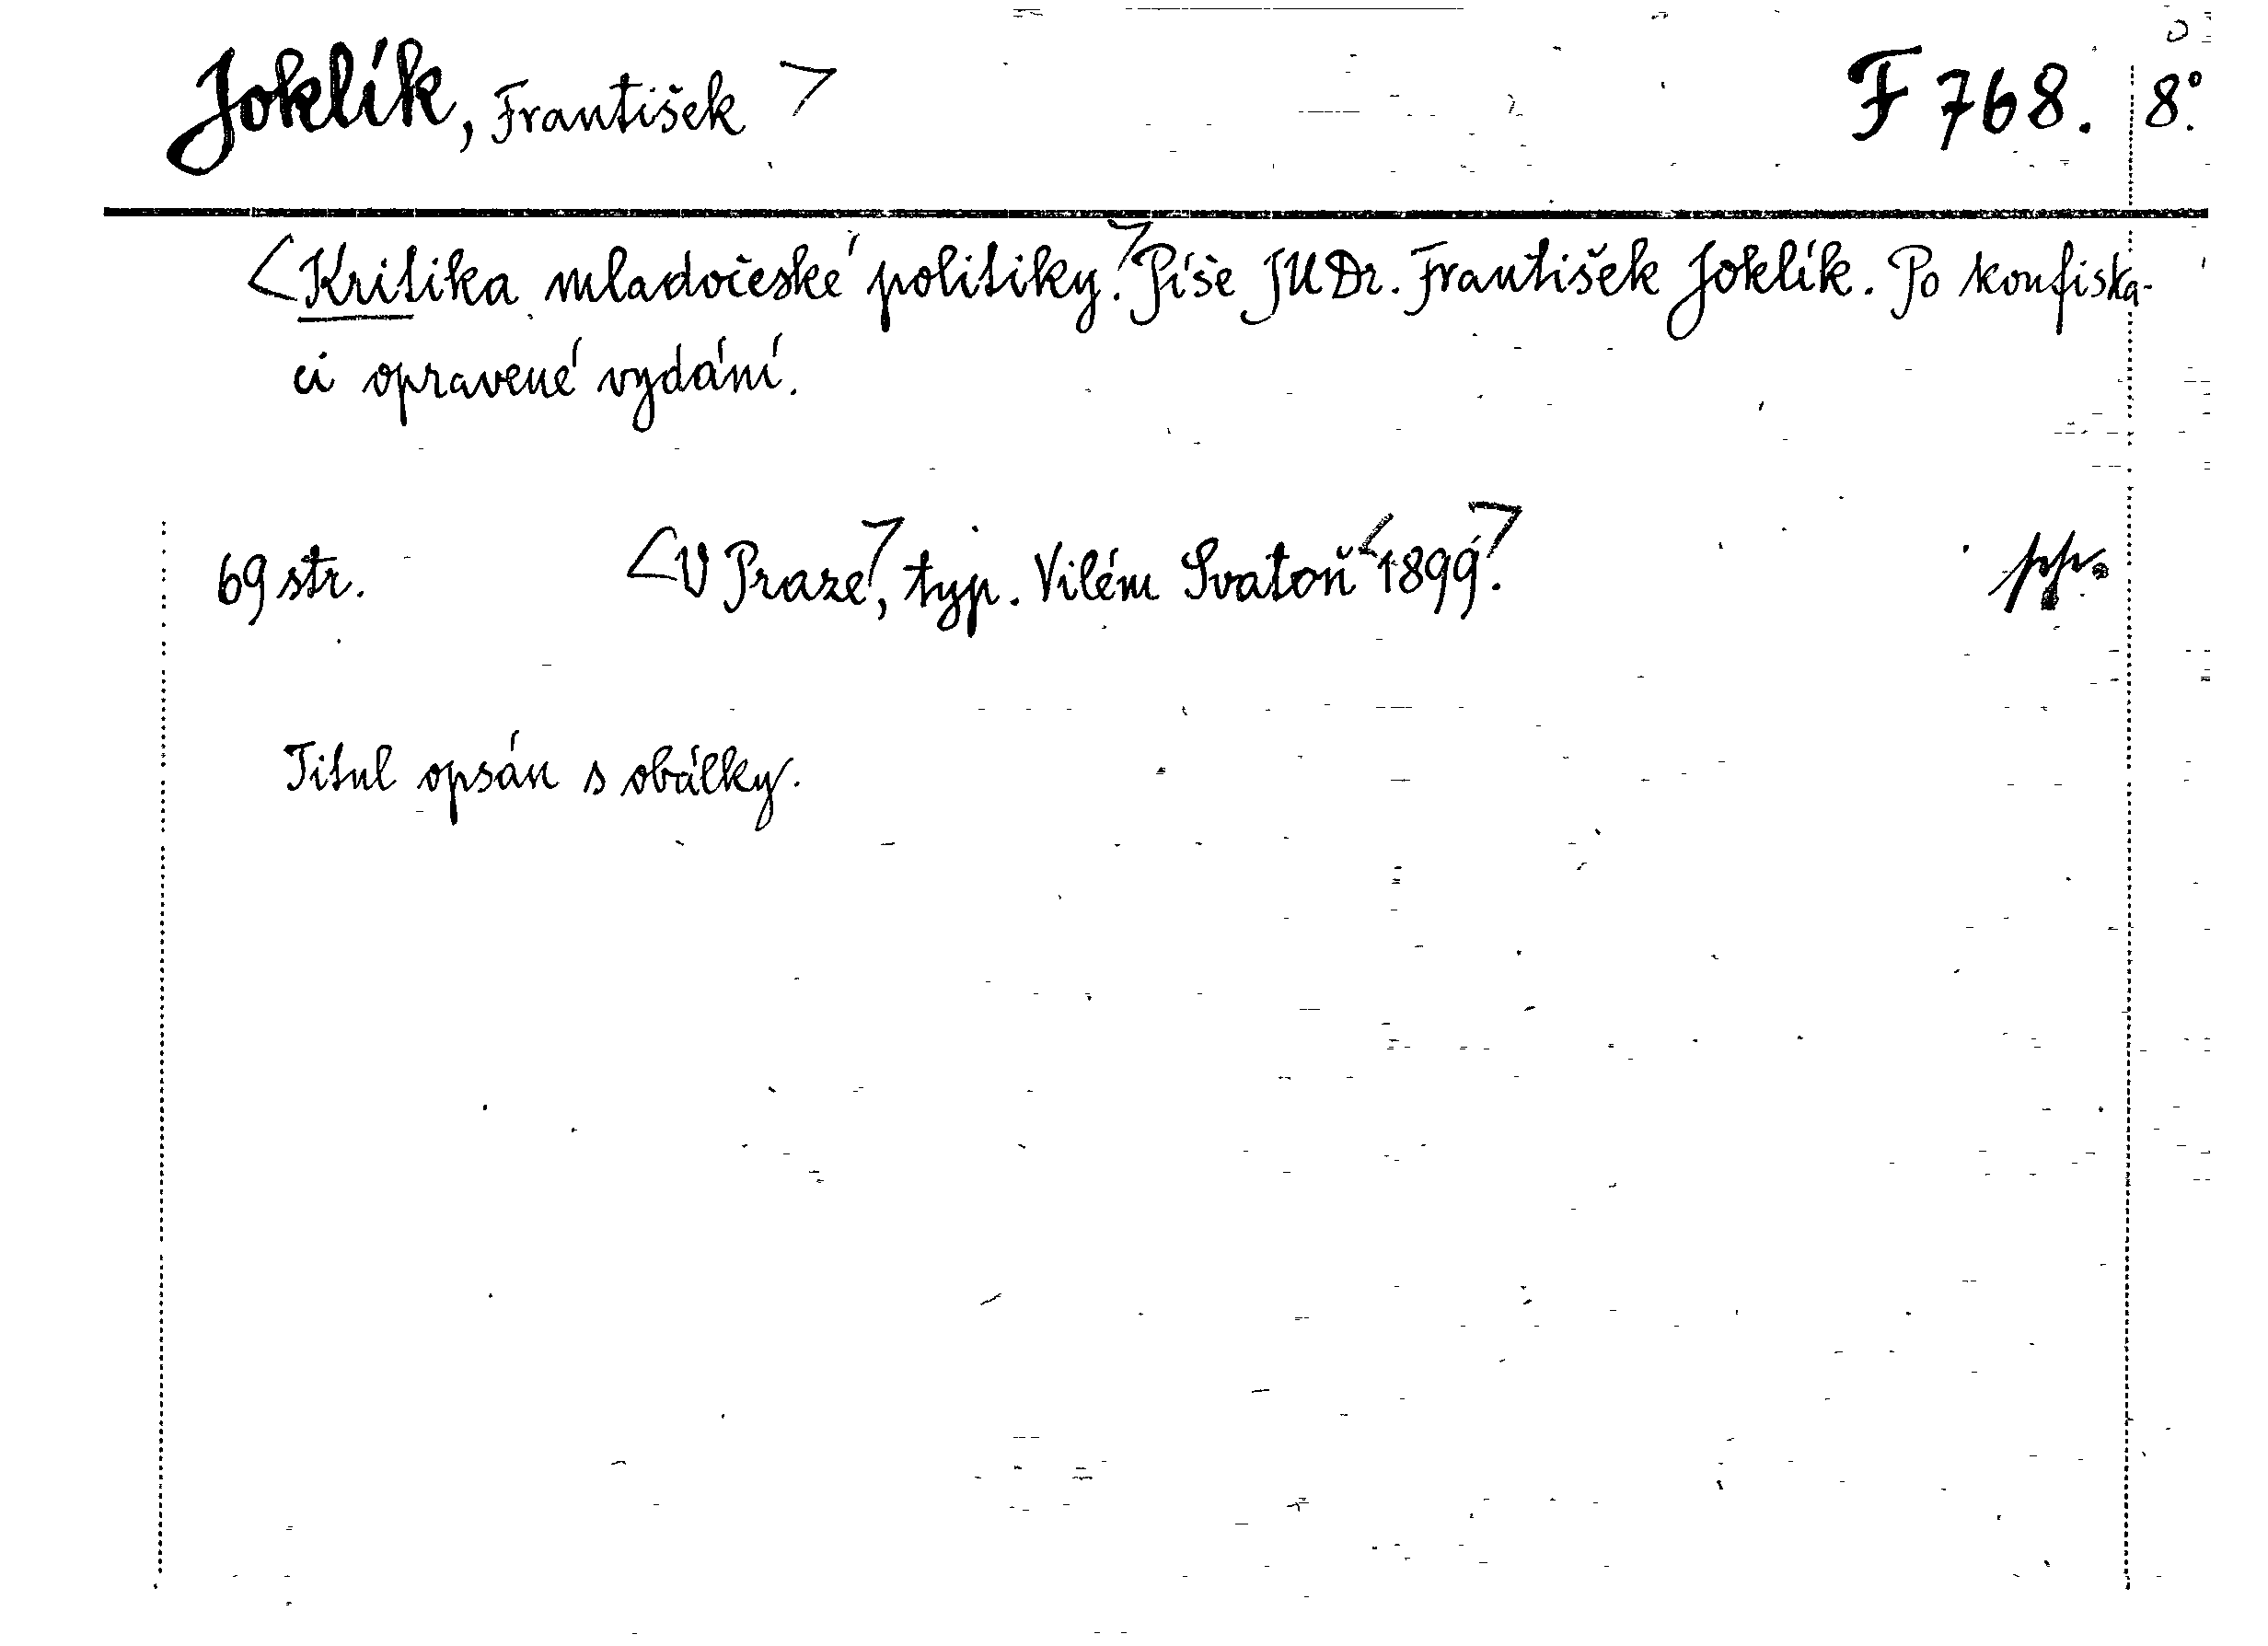 Joklík, František > F 768. 8°.
<Kritika mladočeské politiky.> Píše JUDr. František Joklík. Po konfiska-
ci opravené vydání.
69 str. <V Praze>, typ. Vilém Svatoň <1899>. pp.
Titul opsán s obálky.